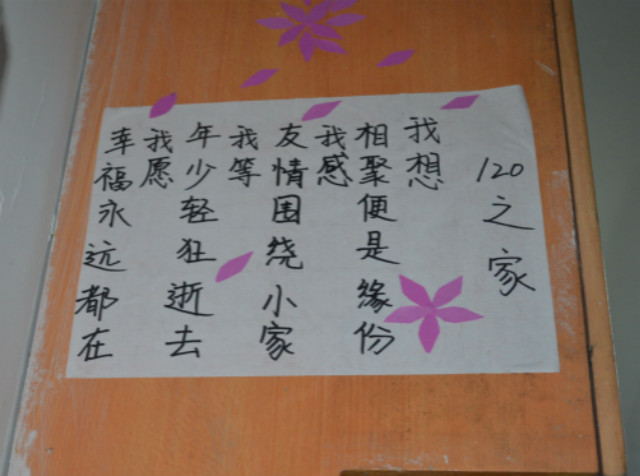 120之家
我想
相聚便是緣份
我感
友情围绕小家
我等
年少轻狂逝去
我愿
幸福永远都在